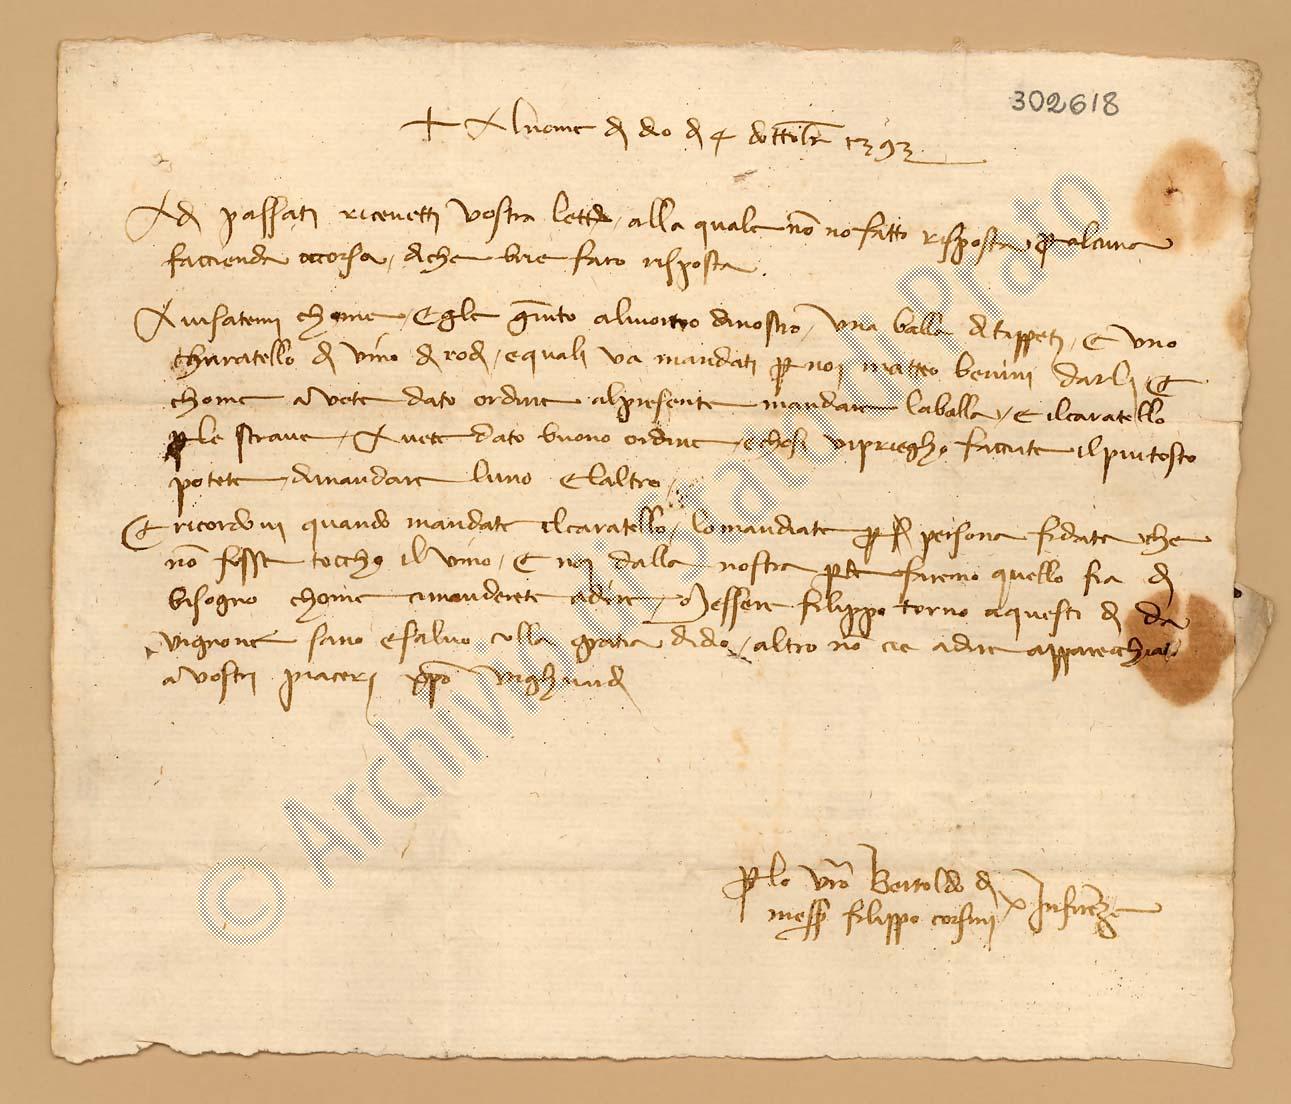 302618
+ Al nome di dio di 4 dottobr 1393
Adi passati ricevetti vostra lettera alla quale non no fatto risposta per alcuna
faccienda ocorsa, diche brie faro risposta
Avisatemi chome egle giunto a livorno dinostro una balla di tappeti, e uno
charatello di vino di rodi, e quali va mandati per noi matteo benini darli, e
chome avete dato ordine al presente mandare la balla, e il caratello
per le strave. Avete dato buono ordine, e chosi vi priegho facciate il piu tosto
potete, dimandare luno e laltro.
E ricordovi quando mandate il caratello, lo mandiate per persona fidata che
non fosse toccho il vino, e noi dalla nostra parte faremo quello fia di
bisogno chome ci manderete a dire. Messere filippo torno a questi di da
vignone sano e salvo colla gratia didio, altro non cie a dire apparecchiato
a vostri piaceri xpo vi ghuardi
per lo vostro Bertoldo di
mess filippo corsini x In firenze
© Archivio di Stato di Prato